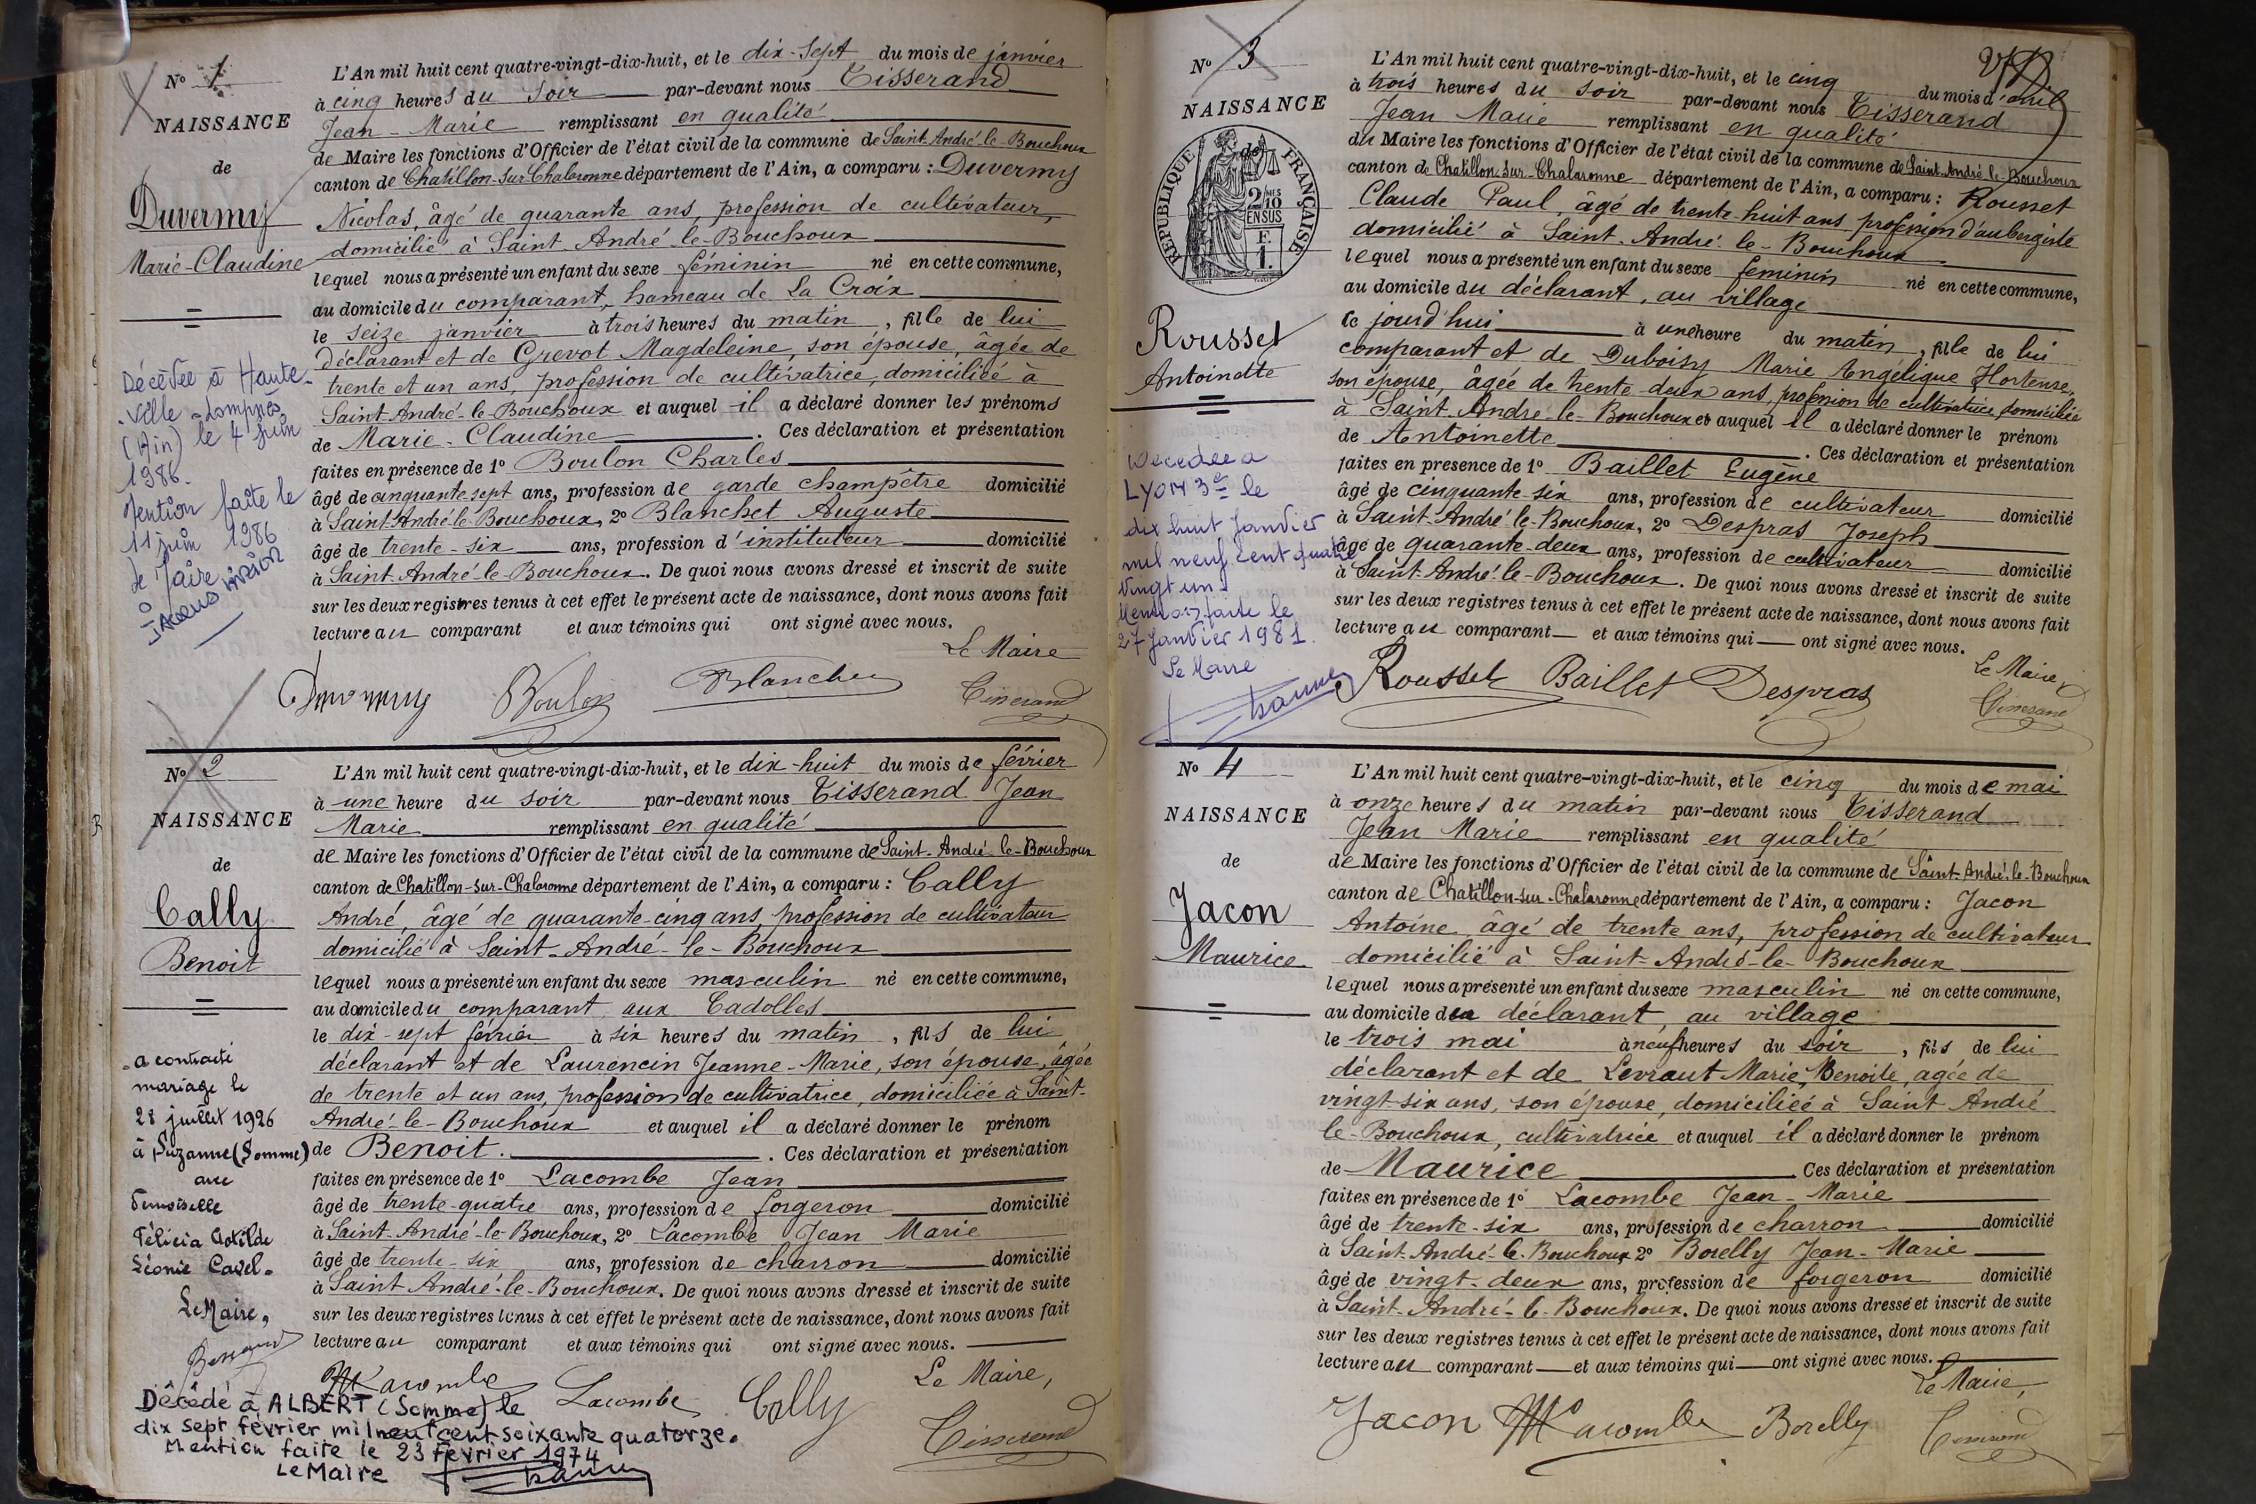 N° 1
NAISSANCE
de
Duvermy
Marie-Claudine
Décédée à Haute-
ville-Lompnès
(Ain) le 4 juin
1986.
Mention faite le
11 juin 1986
le Maire
L'An mil huit cent quatre-vingt-dix-huit, et le dix-sept du mois de janvier
à cinq heures du soir par-devant nous Tisserand
Jean-Marie remplissant en qualité
de Maire les fonctions d'Officier de l'état civil de la commune de Saint-André-le-Bouchoux
canton de Chatillon-sur-Chalaronne département de l'Ain, a comparu : Duvermy
Nicolas, âgé de quarante ans, profession de cultivateur,
domicilié à Saint-André-le-Bouchoux
lequel nous a présenté un enfant du sexe féminin né en cette commune,
au domicile du comparant, hameau de La Croix
le seize janvier à trois heures du matin, fille de lui
déclarant et de Grevot Magdeleine, son épouse, âgée de
trente et un ans, profession de cultivatrice, domiciliée à
Saint-André-le-Bouchoux et auquel il a déclaré donner les prénoms
de Marie-Claudine. Ces déclaration et présentation
faites en présence de 1° Boulon Charles
âgé de cinquante sept ans, profession de garde champêtre domicilié
à Saint-André-le-Bouchoux, 2° Blanchet Auguste
âgé de trente-six ans, profession d'instituteur domicilié
à Saint-André-le-Bouchoux. De quoi nous avons dressé et inscrit de suite
sur les deux registres tenus à cet effet le présent acte de naissance, dont nous avons fait
lecture au comparant et aux témoins qui ont signé avec nous.
Le Maire
Duvermy Boulon Blanchet Tisserand
N° 2
NAISSANCE
de
Cally
Benoit
a contracté
mariage le
28 juillet 1926
à Suzanne (Somme)
avec
Demoiselle
Félicia Clotilde
Léonie Cavel.
Le Maire,
L'An mil huit cent quatre-vingt-dix-huit, et le dix-huit du mois de février
à une heure du soir par-devant nous Tisserand Jean
Marie remplissant en qualité
de Maire les fonctions d'Officier de l'état civil de la commune de Saint-André-le-Bouchoux
canton de Chatillon-sur-Chalaronne département de l'Ain, a comparu : Cally
André, âgé de quarante-cinq ans, profession de cultivateur
domicilié à Saint-André-le-Bouchoux
lequel nous a présenté un enfant du sexe masculin né en cette commune,
au domicile du comparant aux Cadolles
le dix-sept février à six heures du matin, fils de lui
déclarant et de Laurencin Jeanne-Marie, son épouse, âgée
de trente et un ans, profession de cultivatrice, domiciliée à Saint-
André-le-Bouchoux et auquel il a déclaré donner le prénom
de Benoit. Ces déclaration et présentation
faites en présence de 1° Lacombe Jean
âgé de trente-quatre ans, profession de forgeron domicilié
à Saint-André-le-Bouchoux, 2° Lacombe Jean Marie
âgé de trente-six ans, profession de charron domicilié
à Saint-André-le-Bouchoux. De quoi nous avons dressé et inscrit de suite
sur les deux registres tenus à cet effet le présent acte de naissance, dont nous avons fait
lecture au comparant et aux témoins qui ont signé avec nous.
Le Maire,
Lacombe Lacombe Cally Tisserand
Décédé à ALBERT (Somme) le
dix sept février mil neuf cent soixante quatorze.
Mention faite le 23 février 1974
Le Maire
N° 3
NAISSANCE
de
RÉPUBLIQUE FRANÇAISE
2/10 EN SUS
Rousset
Antoinette
Décédée à
LYON 3e le
dix huit janvier
mil neuf cent quatre
vingt un.
Mention faite le
27 janvier 1981.
Le Maire
L'An mil huit cent quatre-vingt-dix-huit, et le cinq du mois d'avril
à trois heures du soir par-devant nous Tisserand
Jean Marie remplissant en qualité
du Maire les fonctions d'Officier de l'état civil de la commune de Saint-André-le-Bouchoux
canton de Chatillon-sur-Chalaronne département de l'Ain, a comparu : Rousset
Claude Paul, âgé de trente-huit ans, profession d'aubergiste
domicilié à Saint-André-le-Bouchoux
lequel nous a présenté un enfant du sexe feminin né en cette commune,
au domicile du déclarant, au village
ce jourd'hui à une heure du matin, fille de lui
comparant et de Duboisy Marie Angélique Hortense,
son épouse, âgée de trente-deux ans, profession de cultivatrice, domiciliée
à Saint-André-le-Bouchoux et auquel il a déclaré donner le prénom
de Antoinette. Ces déclaration et présentation
faites en présence de 1° Baillet Eugène
âgé de cinquante-six ans, profession de cultivateur domicilié
à Saint-André-le-Bouchoux, 2° Despras Joseph
âgé de quarante-deux ans, profession de cultivateur domicilié
à Saint-André-le-Bouchoux. De quoi nous avons dressé et inscrit de suite
sur les deux registres tenus à cet effet le présent acte de naissance, dont nous avons fait
lecture au comparant et aux témoins qui ont signé avec nous.
Le Maire
Rousset Baillet Despras Tisserand
N° 4
NAISSANCE
de
Jacon
Maurice
L'An mil huit cent quatre-vingt-dix-huit, et le cinq du mois de mai
à onze heures du matin par-devant nous Tisserand
Jean Marie remplissant en qualité
de Maire les fonctions d'Officier de l'état civil de la commune de Saint-André-le-Bouchoux
canton de Chatillon-sur-Chalaronne département de l'Ain, a comparu : Jacon
Antoine, âgé de trente ans, profession de cultivateur
domicilié à Saint-André-le-Bouchoux
lequel nous a présenté un enfant du sexe masculin né en cette commune,
au domicile du déclarant au village
le trois mai à neuf heures du soir, fils de lui
déclarant et de Levraut Marie, Benoite, agée de
vingt-six ans, son épouse, domiciliée à Saint André
le-Bouchoux, cultivatrice et auquel il a déclaré donner le prénom
de Maurice Ces déclaration et présentation
faites en présence de 1° Lacombe Jean-Marie
âgé de trente-six ans, profession de charron domicilié
à Saint-André-le-Bouchoux 2° Borelly Jean-Marie
âgé de vingt-deux ans, profession de forgeron domicilié
à Saint-André-le-Bouchoux. De quoi nous avons dressé et inscrit de suite
sur les deux registres tenus à cet effet le présent acte de naissance, dont nous avons fait
lecture au comparant et aux témoins qui ont signé avec nous.
Le Maire,
Jacon Lacombe Borelly Tisserand